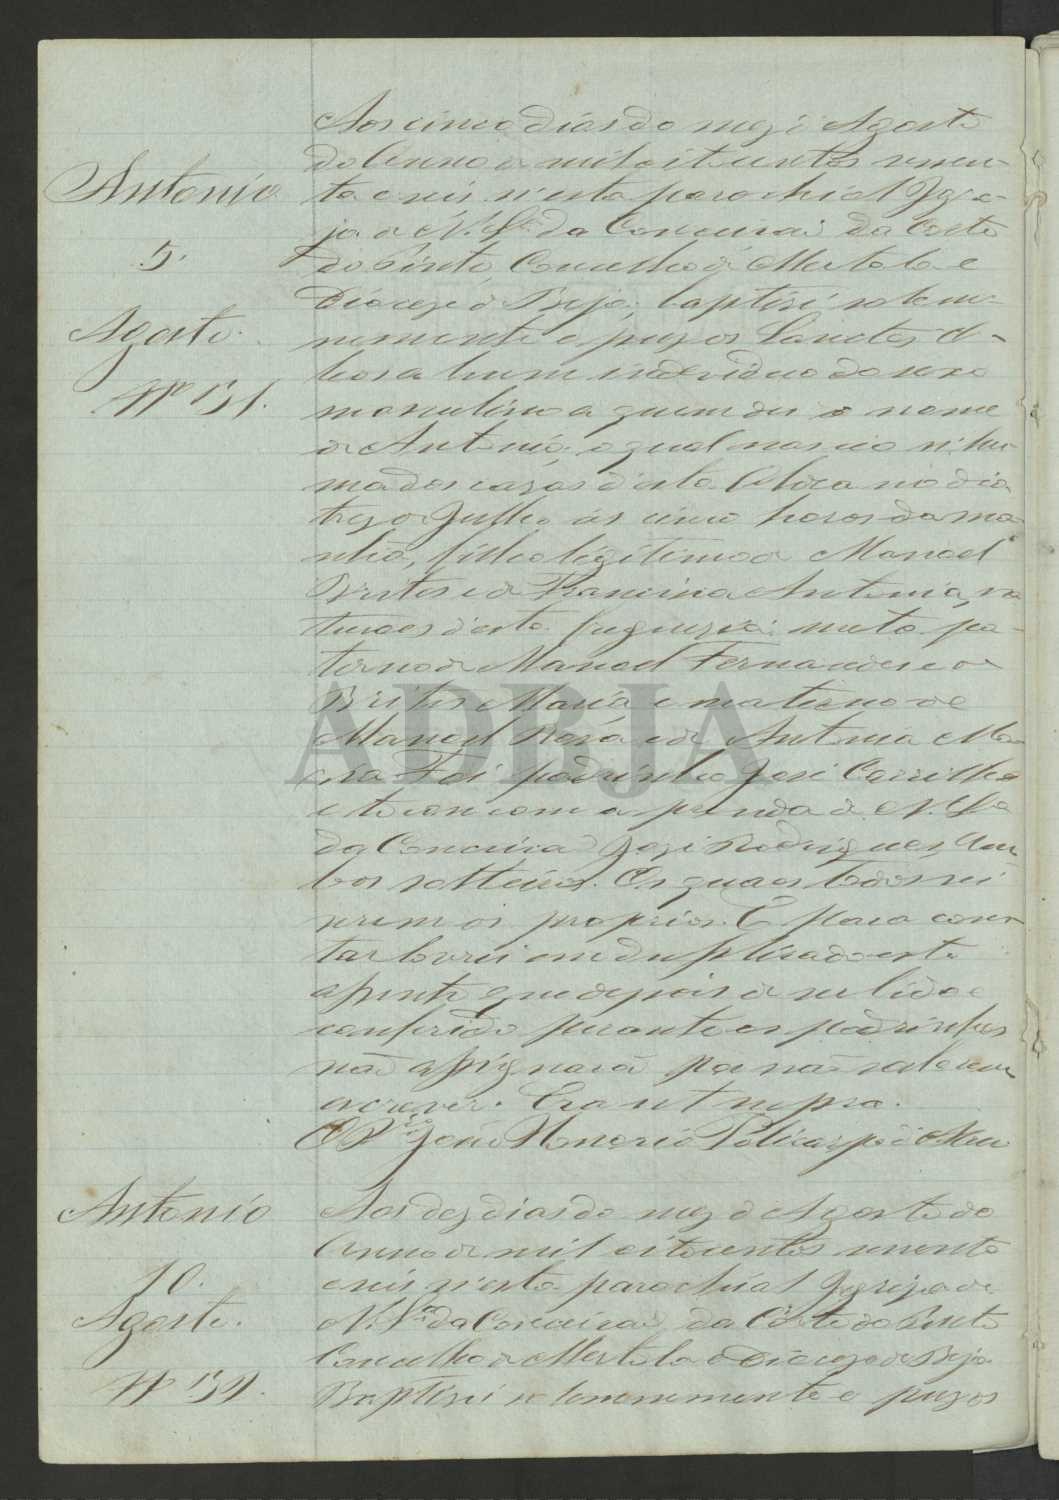 Antonio
5.
Agosto.
Nº 131.
Aos cinco dias do mez d'Agosto
do Anno de mil oitocentos sessen-
ta e seis n'esta parochial Igre-
ja de N. Sra. da Conceicaõ da Corte
do Pinto, Concelho de Mertola e
Diocese de Beja; baptisei solem-
nemente e puz os Sanctos O-
leos a hum individuo do sexo
masculino a quem dei o nome
de Antonio; o qual nasceo n'hu-
ma das cazas d'esta Aldea no dia
trez de Julho ás cinco horas da ma-
nhã, filho legitimo de Manoel
Brites e de Francisca Antonia, na-
turaes d'esta freguezia: neto pa-
terno de Manoel Fernandes e de
Brites Maria e materno de
Manoel Rosa e de Antonia Ma-
ria. Foi padrinho José Carrilho
e tocou com a prenda de N. Sra.
da Conceicaõ José Rodrigues, am-
bos solteiros. Os quaes todos sei
serem os proprios. E para cons-
tar lavrei em duplicado este
assento que depois de ser lido e
conferido perante os padrinhos
naõ assignaraõ por naõ saberem
escrever. Era ut supra.
João Policarpo
Antonio
10.
Agosto.
Aos dez dias do mez d'Agosto do
Anno de mil oitocentos sessenta
e seis n'esta parochial Igreja de
N. Sra. da Conceicaõ da Corte do Pinto
Concelho de Mertola e Diocese de Beja
Baptisei solemnemente e puz os
ADBJA